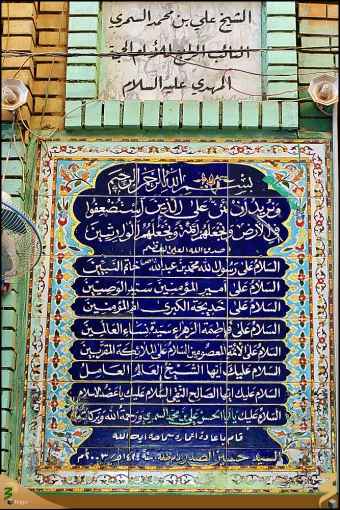 الشيخ علي بن محمد السمري
النائب الرابع للإمام الحجة
المهدي عليه السلام
بسم الله الرحمن الرحيم
ونريد ان نمن على الذين استضعفوا
في الارض ونجعلهم ائمة ونجعلهم الوارثين
صدق الله العلي العظيم
السلام على رسول الله محمد بن عبد الله خاتم النبيين
السلام على امير المؤمنين سيد الوصيين
السلام على خديجة الكبرى ام المؤمنين
السلام على فاطمة الزهراء سيدة نساء العالمين
السلام على الائمة المعصومين السلام على الملائكة المقربين
السلام عليك ايها الشيخ العالم العامل
السلام عليك ايها الصالح التقي السلام عليك يا عضد الاسلام
السلام عليك يا ابا الحسن علي بن محمد السمري ورحمة الله وبركاته
قام باعادة اعماره سماحة اية الله
السيد حسين الصدر سنة ١٤٢٤هـ ٢٠٠٣م